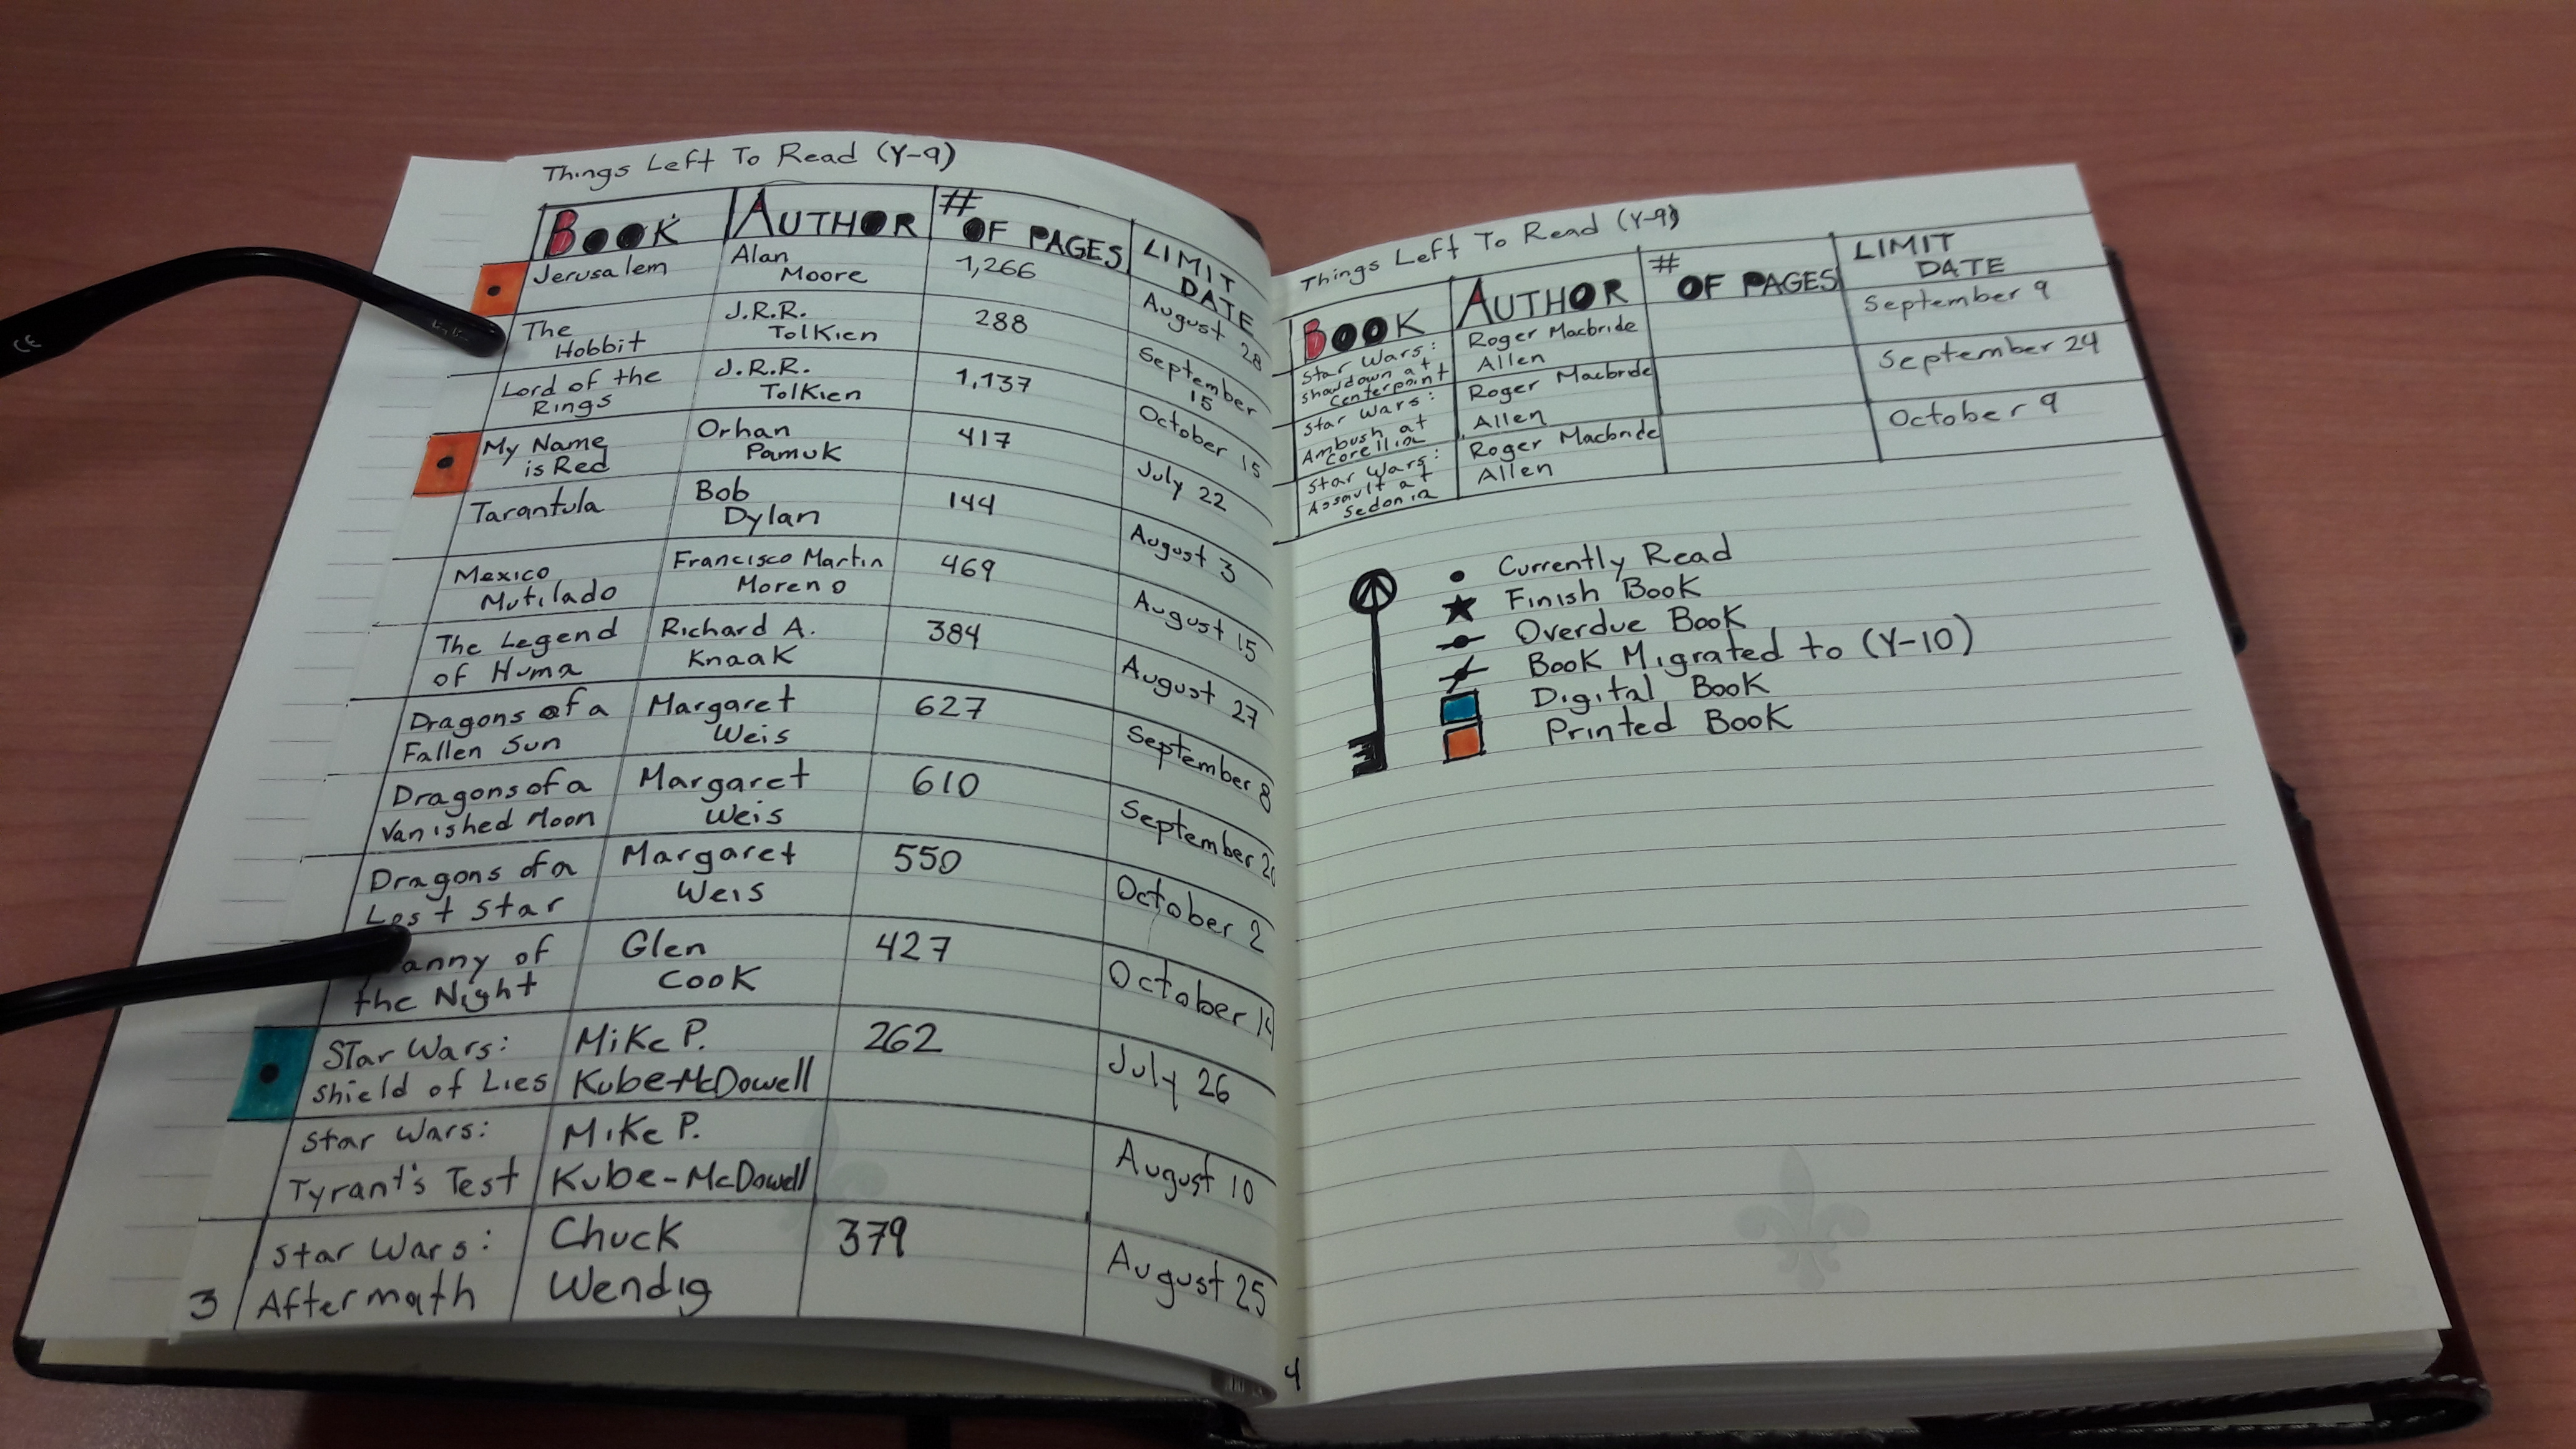 Things Left To Read (Y-9)
BOOK AUTHOR # OF PAGES LIMIT DATE
Jerusalem Alan Moore 1,266 August 28
The Hobbit J.R.R. Tolkien 288 September 15
Lord of the Rings J.R.R. Tolkien 1,137 October 15
My Name is Red Orhan Pamuk 417 July 22
Tarantula Bob Dylan 144 August 3
Mexico Mutilado Francisco Martin Moreno 469 August 15
The Legend of Huma Richard A. Knaak 384 August 27
Dragons of a Fallen Sun Margaret Weis 627 September 8
Dragons of a Vanished Moon Margaret Weis 610 September
Dragons of a Lost Star Margaret Weis 550 October 2
of the Night Glen Cook 427 October
Star Wars: Shield of Lies Mike P. Kube-McDowell 262 July 26
Star Wars: Tyrant's Test Mike P. Kube-McDowell August 10
Star Wars: Aftermath Chuck Wendig 379 August 25
3
Things Left To Read (Y-9)
BOOK AUTHOR # OF PAGES LIMIT DATE
Star Wars: Showdown at Centerpoint Roger Macbride Allen September 9
Star Wars: Ambush at Corellia Roger Macbride Allen September 24
Star Wars: Assault at Sedonia Roger Macbride Allen October 9
Currently Read
Finish Book
Overdue Book
Book Migrated to (Y-10)
Digital Book
Printed Book
4
CE